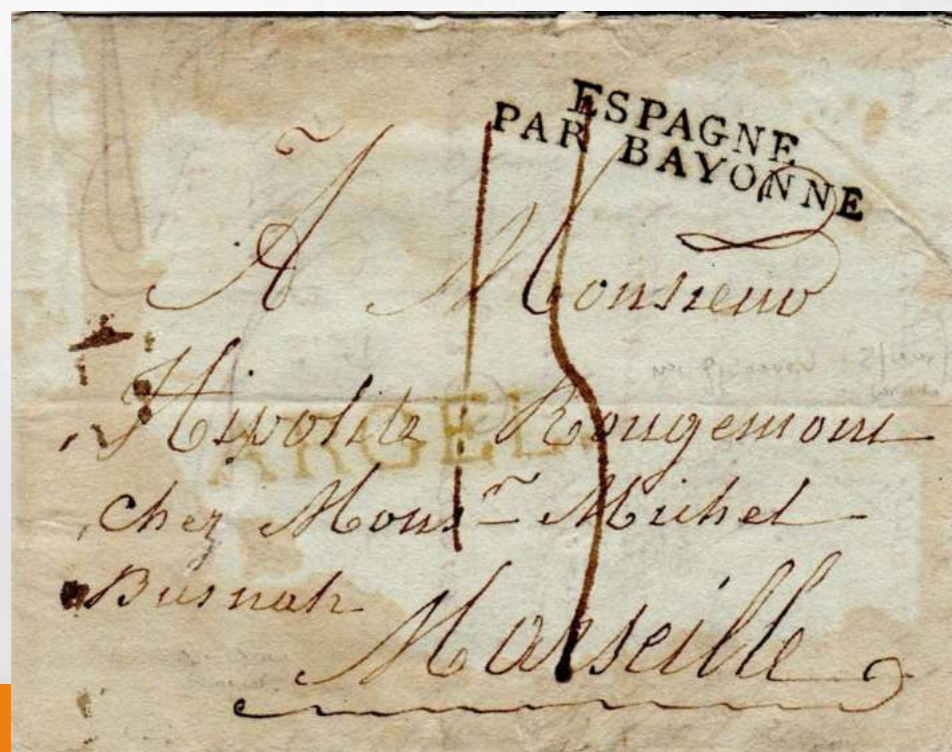 ESPAGNE
PAR BAYONNE
15
A Monsieur
Hipolite Rougemont
ARGEL
chez Monsr Michel
Busnah
Marseille